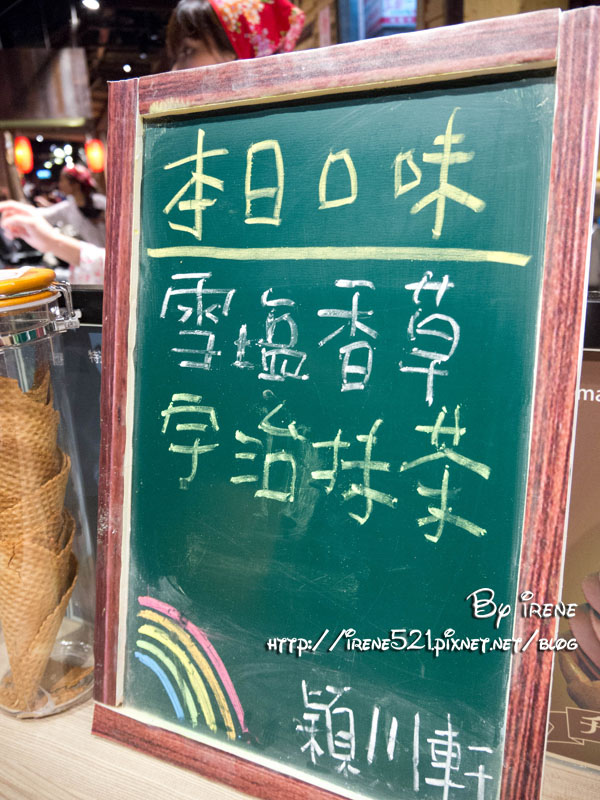 本日口味
雪塩香草
宇治抹茶
By Irene
http://irene521.pixnet.net/blog
穎川軒